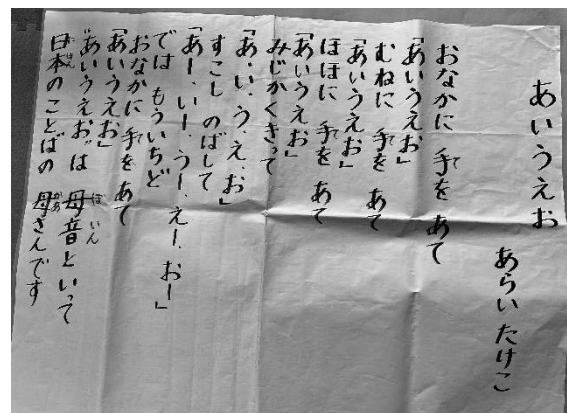 あいうえお
あらい たけこ
おなかに 手を あて
「あいうえお」
むねに 手を あて
「あいうえお」
ほほに 手を あて
「あいうえお」
みじかくきって
「あ.い.う.え.お」
すこし のばして
「あー.いー.うー.えー.おー」
では もういちど
おなかに 手を あて
「あいうえお」
"あいうえお"は 母音といって
日本のことばの 母さんです